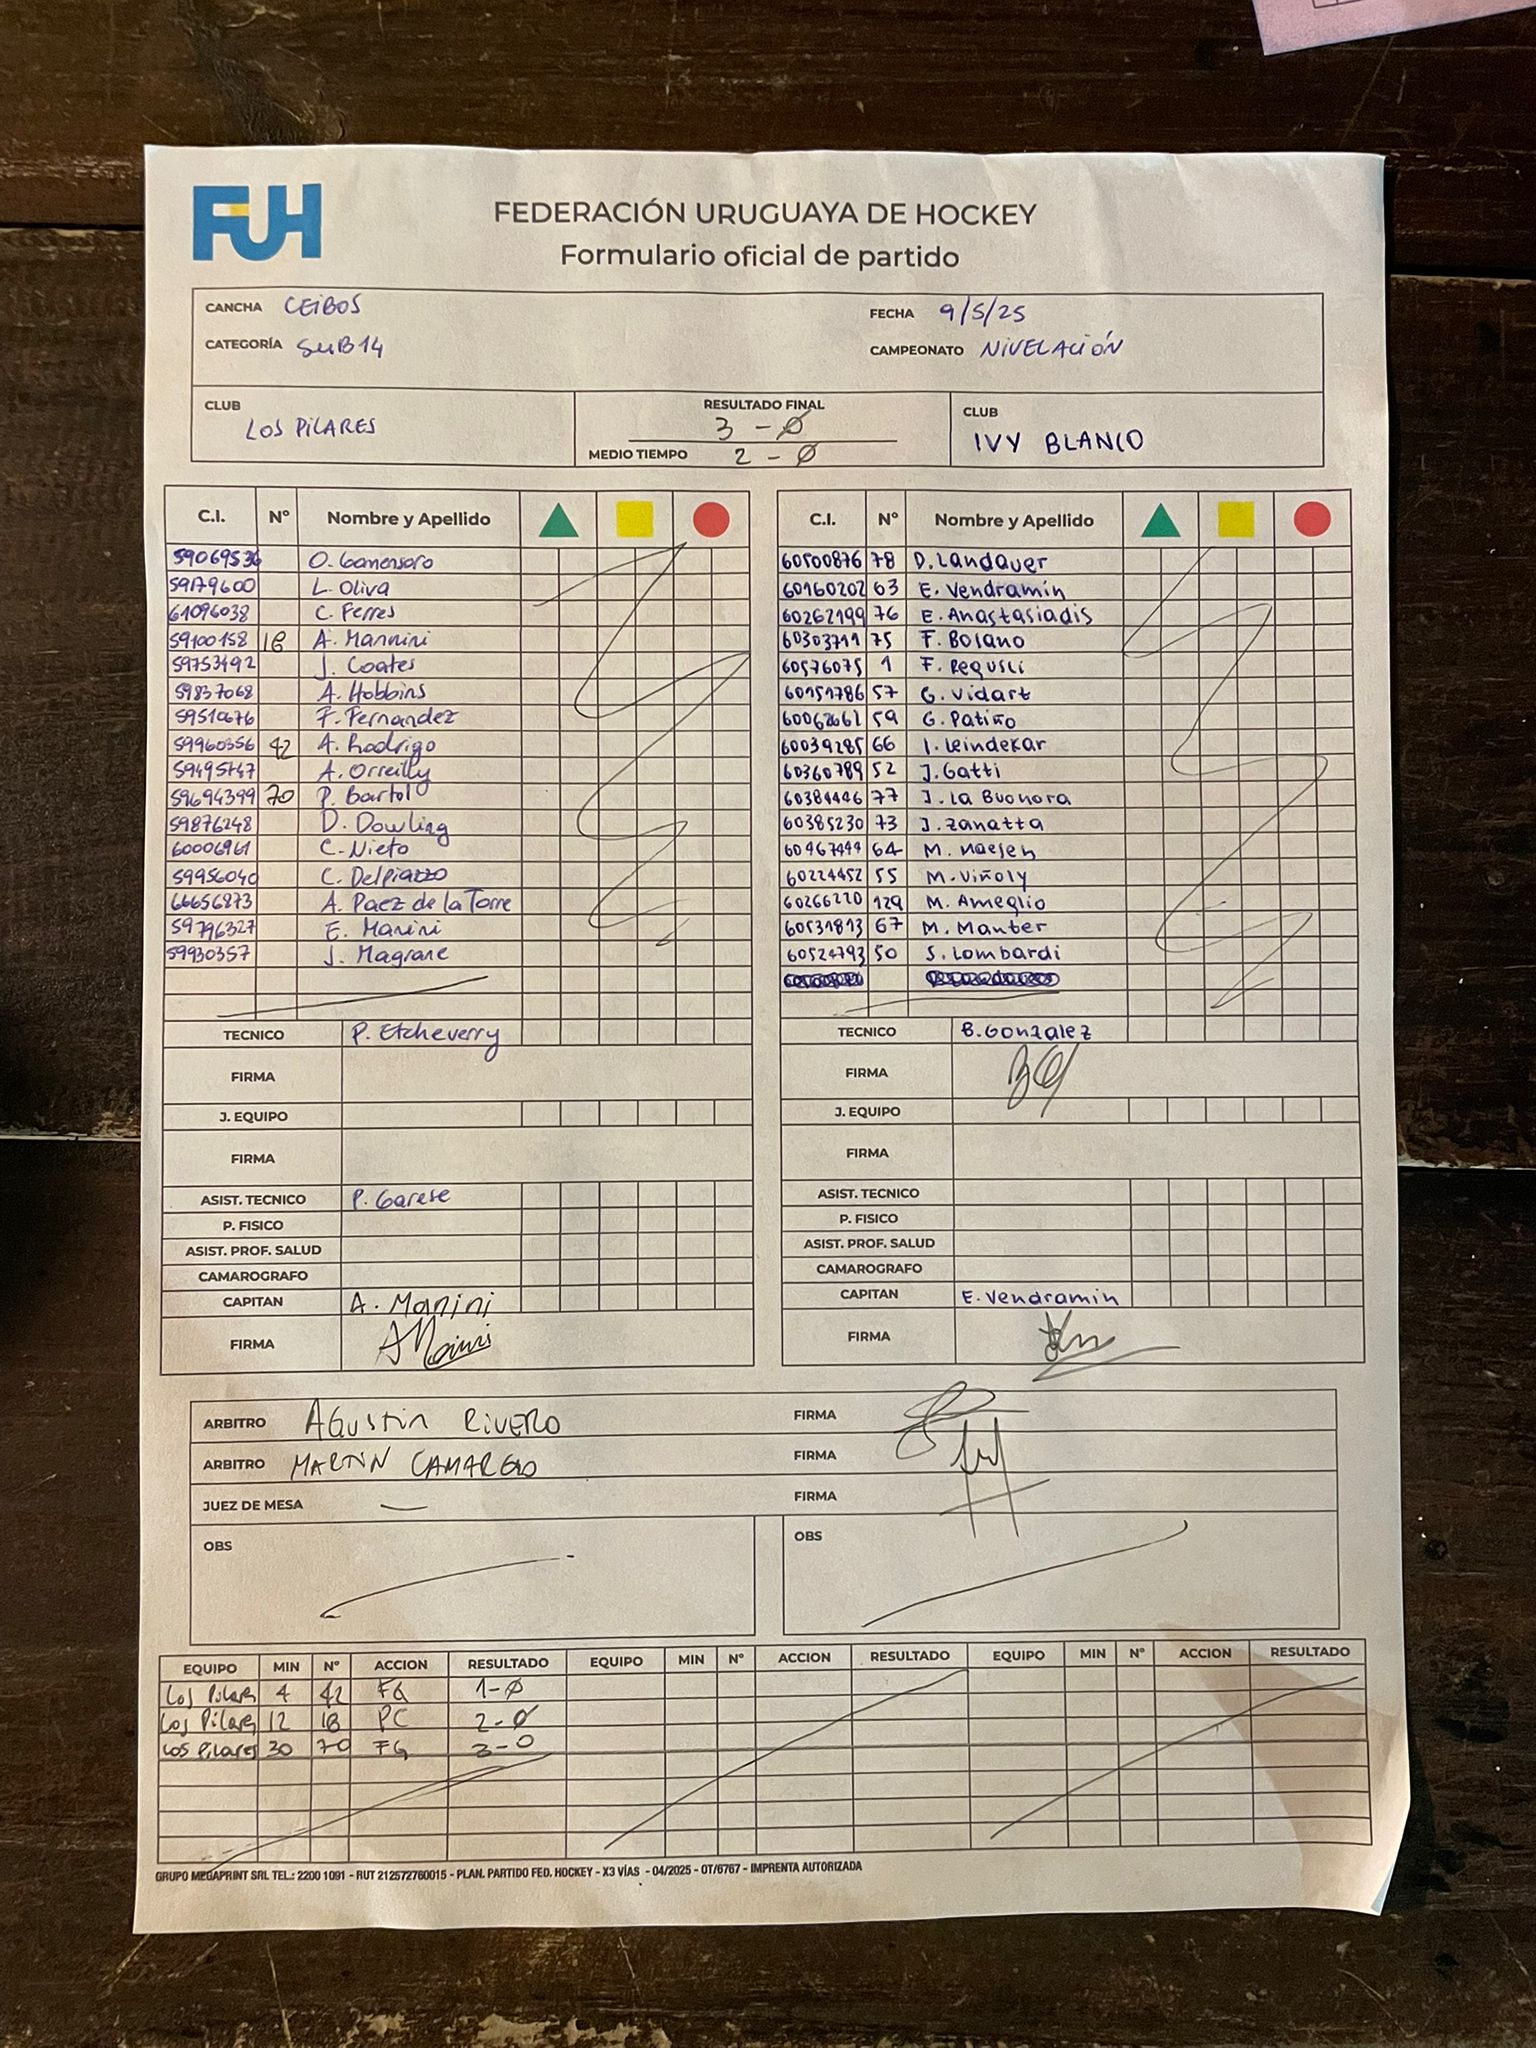 FUH
FEDERACIÓN URUGUAYA DE HOCKEY
Formulario oficial de partido
CANCHA CEIBOS
FECHA 9/5/25
CATEGORÍA SUB14
CAMPEONATO NIVELACIÓN
CLUB LOS PILARES
RESULTADO FINAL 3 - 0
MEDIO TIEMPO 2 - 0
CLUB IVY BLANCO
C.I. Nº Nombre y Apellido
59069536 O. Gomensoro
59179600 L. Oliva
61096038 C. Ferres
59100158 18 A. Mannini
59753492 J. Coates
59837068 A. Hobbins
59510676 F. Fernandez
59960356 42 A. Rodrigo
A. Orreilly
59694399 70 P. Bartol
59876248 D. Dowling
60006961 C. Nieto
59956040 C. Delpiazzo
66656873 A. Paez de la Torre
59796327 E. Manini
59930357 J. Magrane
TECNICO P. Etcheverry
FIRMA
J. EQUIPO
FIRMA
ASIST. TECNICO P. Garese
P. FISICO
ASIST. PROF. SALUD
CAMAROGRAFO
CAPITAN A. Manini
FIRMA AManini
C.I. Nº Nombre y Apellido
60500876 78 D. Landauer
60160202 63 E. Vendramin
60262199 76 E. Anastasiadis
60303711 75 F. Bolano
60576075 1 F. Regusci
60151786 57 G. Vidart
59 G. Patiño
60039285 66 I. Leindekar
60360789 52 J. Gatti
60384446 77 J. La Buonora
60385230 73 J. Zanatta
60467444 64 M. Naesen
60224452 55 M. Viñoly
60266220 129 M. Ameglio
60531813 67 M. Manter
60524793 50 S. Lombardi
TECNICO B. Gonzalez
FIRMA BG
J. EQUIPO
FIRMA
ASIST. TECNICO
P. FISICO
ASIST. PROF. SALUD
CAMAROGRAFO
CAPITAN E. Vendramin
FIRMA
ARBITRO AGUSTIN RIVERO FIRMA
ARBITRO MARTIN CAMARGO FIRMA
JUEZ DE MESA — FIRMA
OBS
OBS
EQUIPO MIN Nº ACCION RESULTADO EQUIPO MIN Nº ACCION RESULTADO EQUIPO MIN Nº ACCION RESULTADO
Los Pilares 4 42 FG 1-0
Los Pilares 12 18 PC 2-0
Los Pilares 30 70 FG 3-0
GRUPO MEGAPRINT SRL TEL.: 2200 1091 - RUT 212572760015 - PLAN. PARTIDO FED. HOCKEY - X3 VÍAS - 04/2025 - OT/6767 - IMPRENTA AUTORIZADA